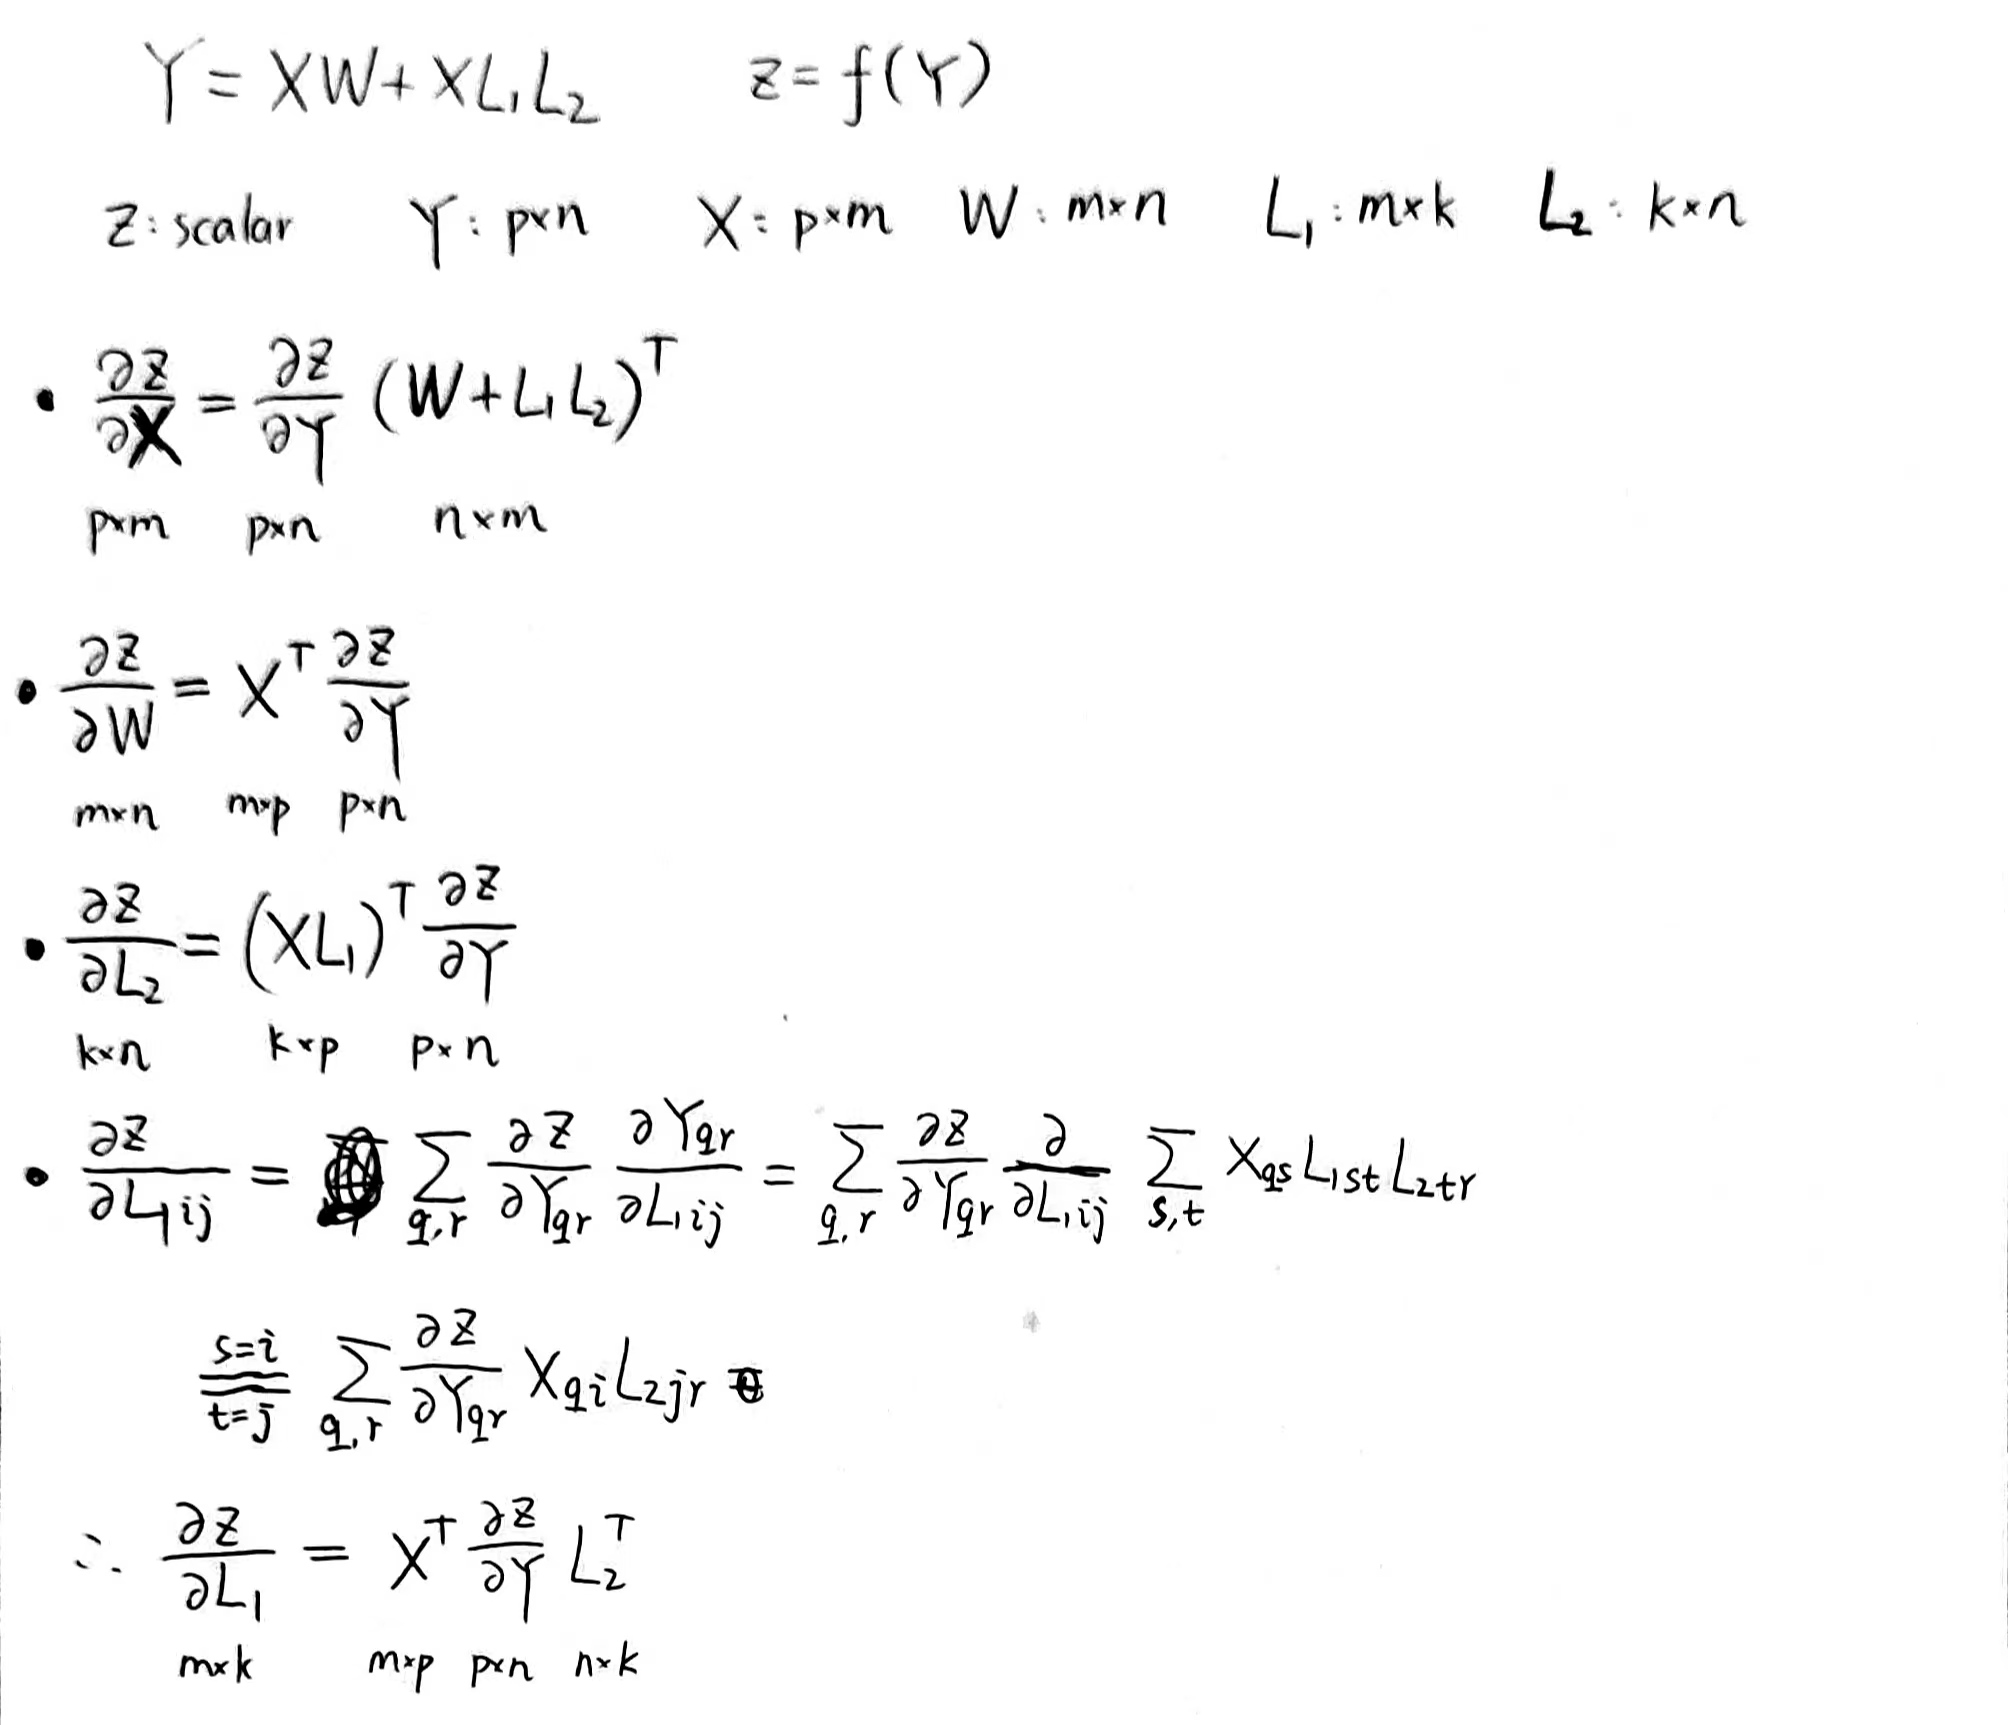 Y = XW + XL₁L₂ z = f(Y)
z: scalar Y: p×n X: p×m W: m×n L₁: m×k L₂: k×n
• ∂z/∂X = ∂z/∂Y (W + L₁L₂)ᵀ
p×m p×n n×m
• ∂z/∂W = Xᵀ ∂z/∂Y
m×n m×p p×n
• ∂z/∂L₂ = (XL₁)ᵀ ∂z/∂Y
k×n k×p p×n
• ∂z/∂L₁ij = Σ_{q,r} ∂z/∂Yqr ∂Yqr/∂L₁ij = Σ_{q,r} ∂z/∂Yqr ∂/∂L₁ij Σ_{s,t} Xqs L₁st L₂tr
s=i t=j = Σ_{q,r} ∂z/∂Yqr Xqi L₂jr
∴ ∂z/∂L₁ = Xᵀ ∂z/∂Y L₂ᵀ
m×k m×p p×n n×k